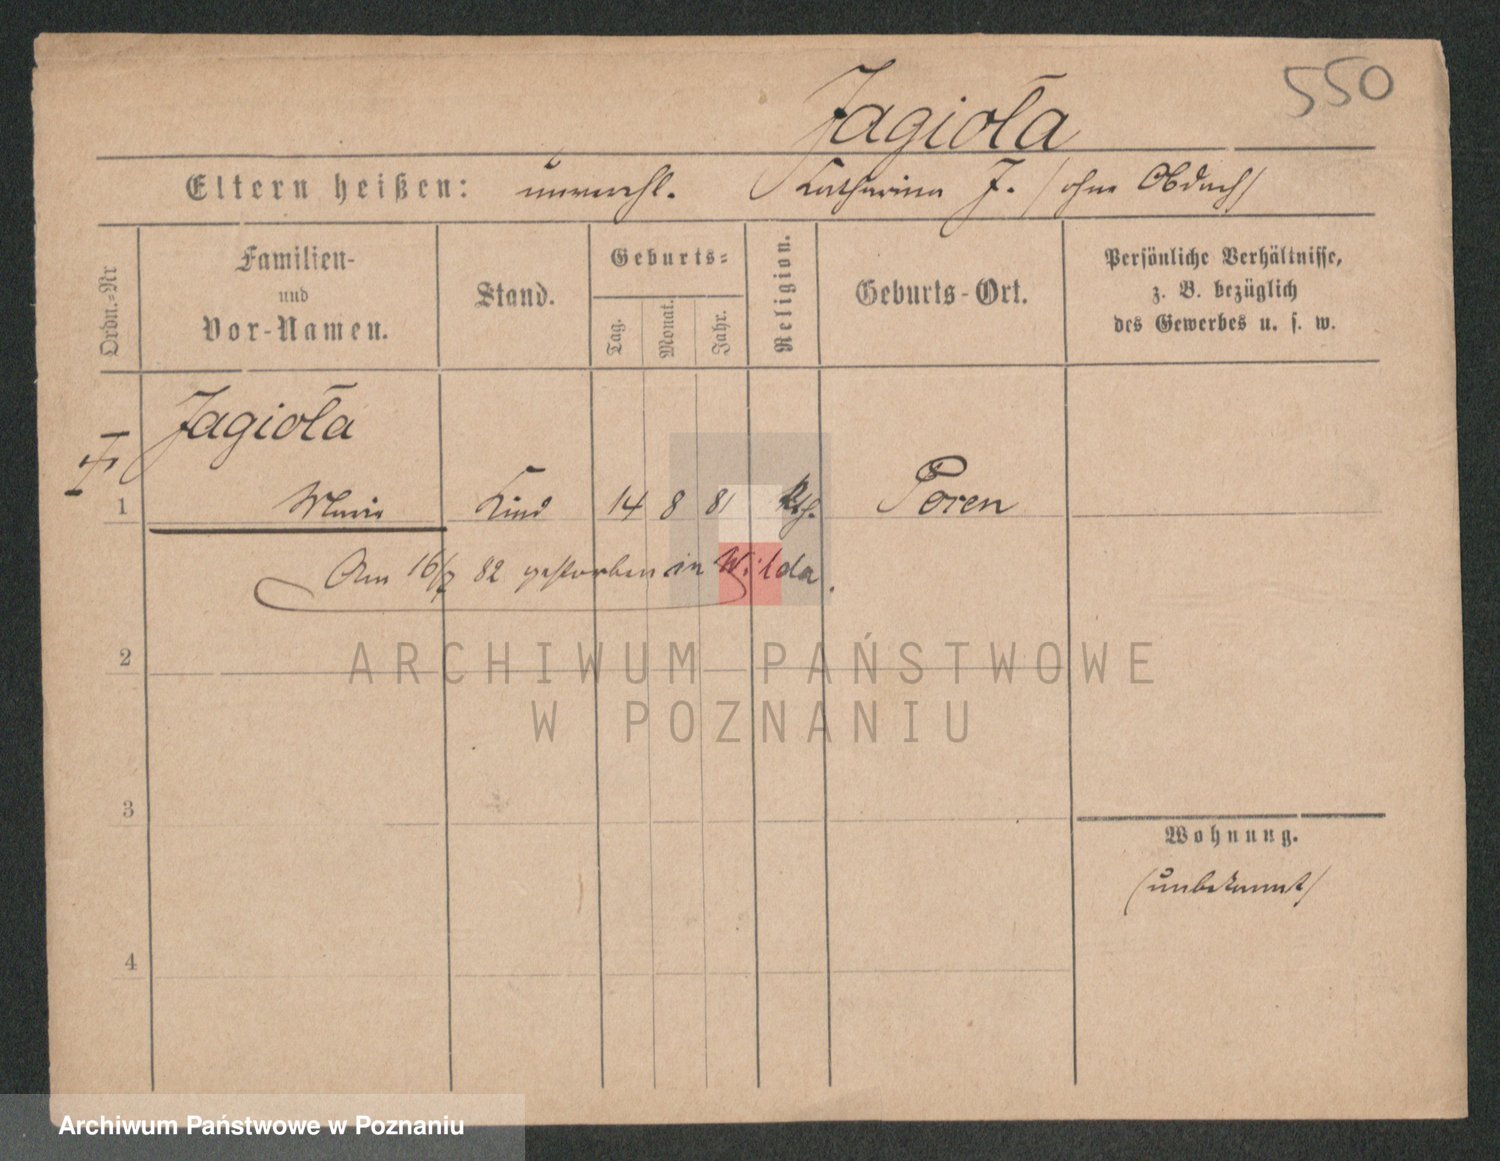 550
Jagioła
Eltern heißen: unverehl. Katharina J. (ohne Obdach)
Ordn.-Nr
Familien-
und
Vor-Namen.
Stand.
Geburts-
Tag.
Monat.
Jahr.
Religion.
Geburts-Ort.
Persönliche Verhältnisse,
z. B. bezüglich
des Gewerbes u. s. w.
Jagioła
1 Marie Kind 14 8 81 Kth. Posen
Am 16/7 82 gestorben in Wilda.
2
ARCHIWUM PAŃSTWOWE
W POZNANIU
3
Wohnung.
(unbekannt)
4
Archiwum Państwowe w Poznaniu